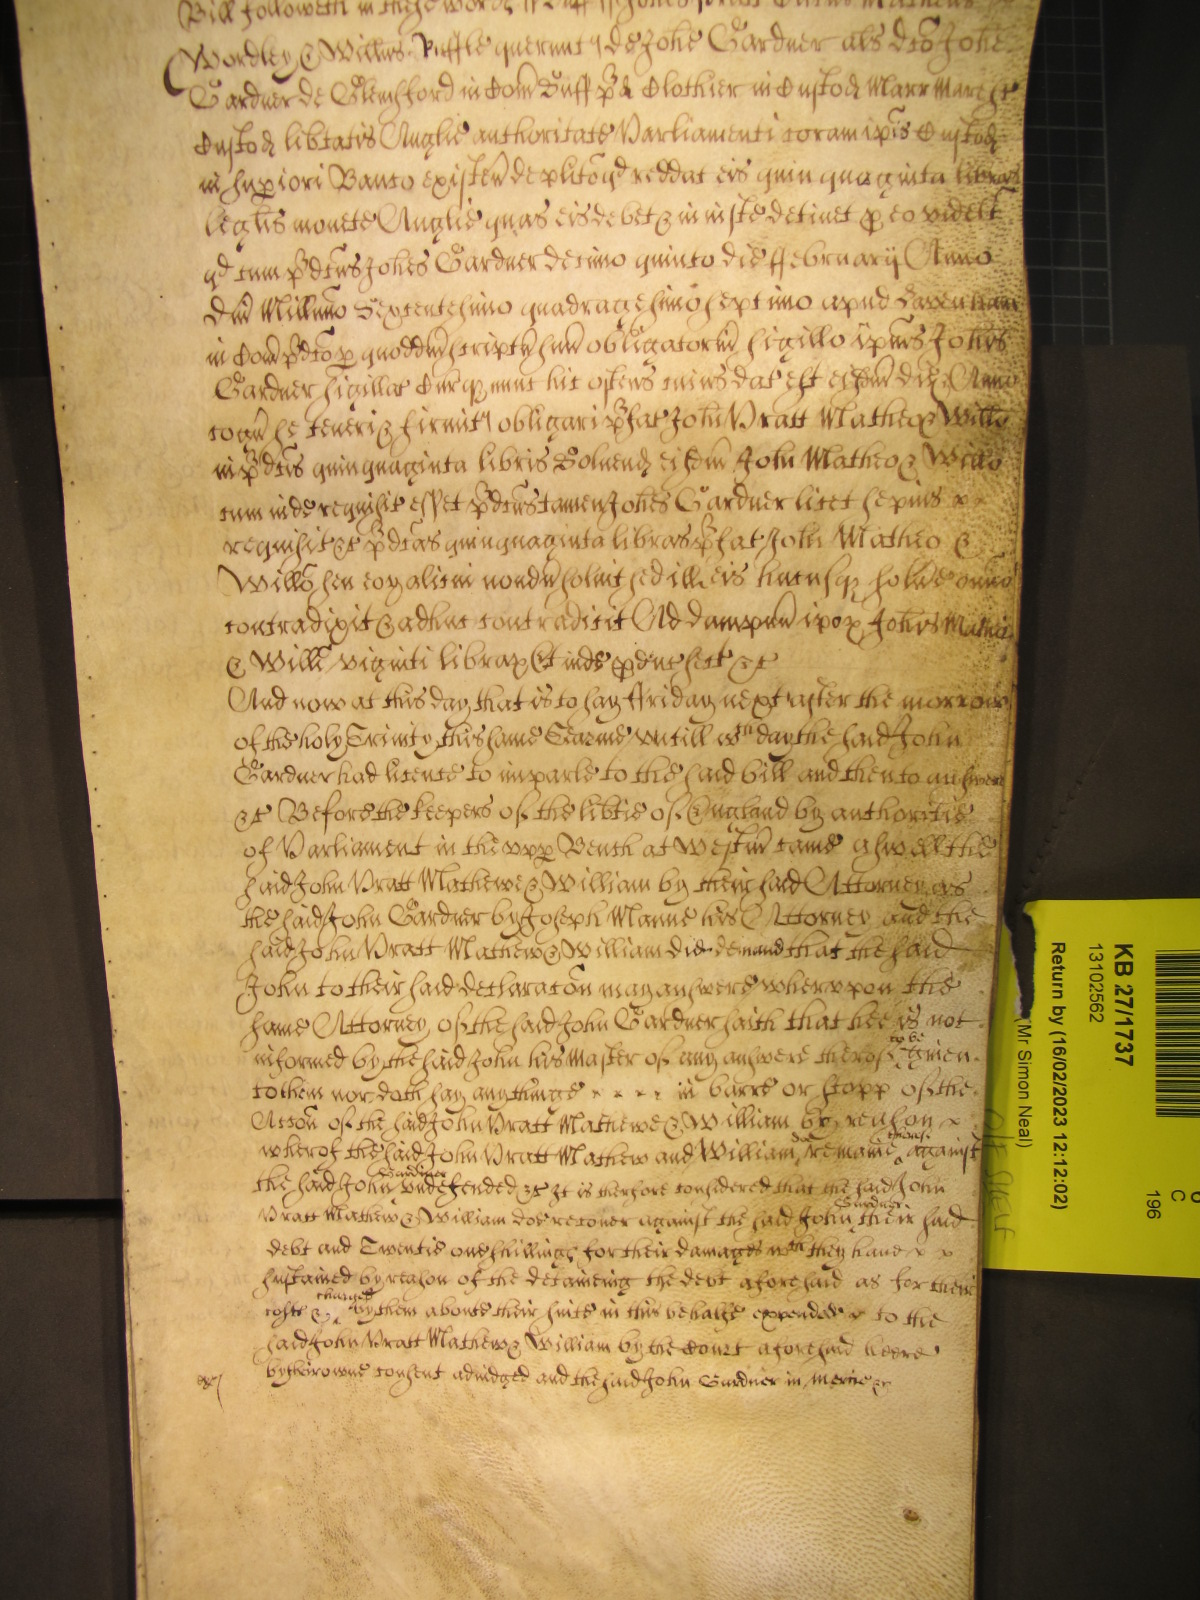 Bill followeth in these words ss Suff ss Johes Pratt Matheus
Wordley & Willms Ruffle querunt de Johe Gardner als dco Johe
Gardner de Glemsford in Com Suff pd Clothier in Custod Marr Maresc
Custod libtatis Anglie authoritate Parliamenti coram ipis Custod
in supiori Banco existen de plito qd reddat eis quinquaginta libras
leglis monete Anglie quas eis debet & iniuste detinet p eo videlt
qd cum pdcus Johes Gardner decimo quinto die ffebruarij Anno
Dni Millimo Sexcentesimo quadragesimo septimo apud Lavenham
in Com pdco p quoddm scriptu suu obligatoriu sigillo ipius Johis
Gardner sigillat Curq nunc hic ostens cuius dat est eisdm die & Anno
cogn se teneri & firmit obligari pfat Johi Pratt Matheo & Willo
in pdcis quinquaginta libris Solvend eisdm Johi Matheo & Willo
cum inde requisit esset pdcus tamen Johes Gardner licet sepius x x
requisit &c pdcas quinquaginta libras pfat Johi Matheo &
Willo seu eor alicui nondu solvit sed ill eis hucusq solvere omno
contradixit & adhuc contradicit Ad dampnu ipor Johis Mathei
& Willi viginti librar Et inde pduc sect &c
And now at this day that is to say ffriday next after the morrow
of the holy Trinity this same Tearme untill wch day the said John
Gardner had licence to imparle to the said bill and then to answer
&c Before the keepers of the libtie of England by authoritie
of Parliament in the upp Bench at Westm came aswell the
said John Pratt Mathewe & William by their said Attorney as
the said John Gardner by Joseph Manne his Attorney and the
said John Pratt Mathew & William did demand that the said
John to their said declaracon may answere wherupon the
same Attorney of the said John Gardner saith that hee is not
informed by the said John his Master of any answere therof to be given
to them nor doth say any thinge x x x x in barre or stopp of the
Accon of the said John Pratt Mathewe & William by reason x
wherof the said John Pratt Mathew and William doe remaine therof against
the said John Gardner undefended &c It is therfore considered that the said John
Pratt Mathew & William doe recover against the said John Gardner their said
debt and Twentie one shillings for their damages wch they have x x
sustained by reason of the deteining the debt aforesaid as for their
costs & charges by them aboute their suite in this behalfe expended x to the
said John Pratt Mathew & William by the Court aforesaid heere
by their owne consent adiudged and the said John Gardner in mercie &c
KB 27/1737
13102562
Return by (16/02/2023 12:12:02)
(Mr Simon Neal)
C
196